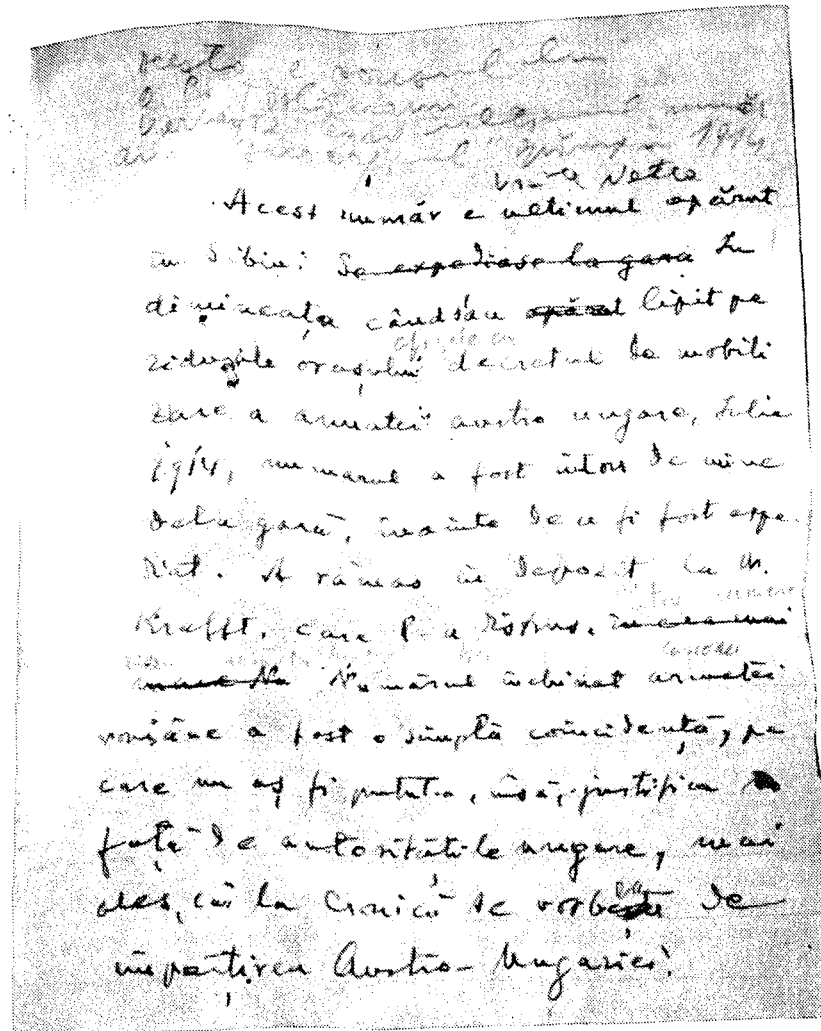 1914
Acest număr e ultimul apărut
în Sibiu. Se expediase la gara In
dimineața când s'au apărut lipit pe
zidurile orașului decretul de mobili
zare a armatei austro ungare, Iulie
1914, numarul a fost întors de mine
dela gară, înainte de a fi fost expe
diat. A rămas în depozit la W.
Krafft, care l-a distrus. In cea mai
mare No Numărul închinat armatei
române a fost o simplă coincidență, pe
care nu aș fi putut-o, însă, justifica
față de autoritățile ungare, mai
ales, că la Cronică se vorbește de
împărțirea Austro-Ungariei!